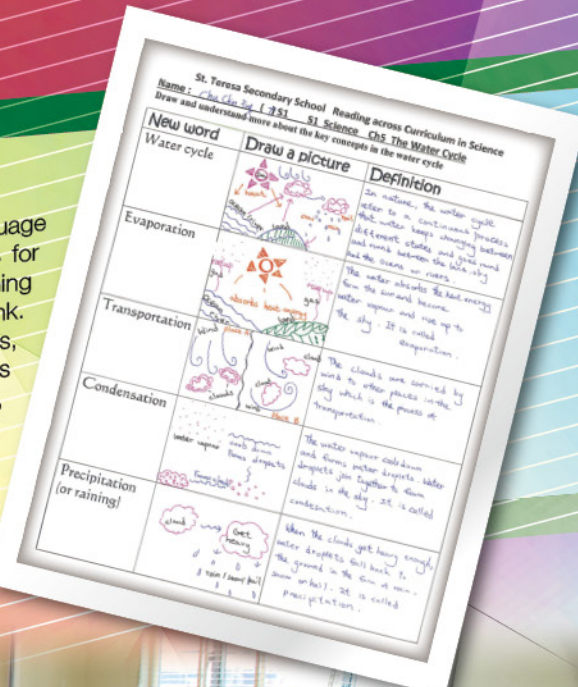 uage
for
ning
nk.
s,
s
St. Teresa Secondary School Reading across Curriculum in Science
Name : ( ) S1 S1 Science Ch5 The Water Cycle
Draw and understand more about the key concepts in the water cycle
New word
Draw a picture
Definition
Water cycle
In nature, the water cycle
refer to a continuous process
that water keeps changing between
different states and goes round
and round between the land, sky
and the oceans or rivers.
Evaporation
gas
absorbs heat energy
gas
The water absorbs the heat energy
form the sun and become
water vapour and rise up to
the sky. It is called
evaporation.
Transportation
wind
wind
cloud
clouds
cloud
wind
place B
The clouds are carried by
wind to other places in the
sky which is the process of
transportation.
Condensation
water vapour
cools down
forms droplets
The water vapour cools down
and forms water droplets. Water
droplets join together to form
clouds in the sky. It is called
condensation.
Precipitation
(or raining)
cloud
Get
heavy
rain / snow / hail
When the clouds get heavy enough,
water droplets fall back to
the ground in the form of rain,
snow or hail. It is called
precipitation.